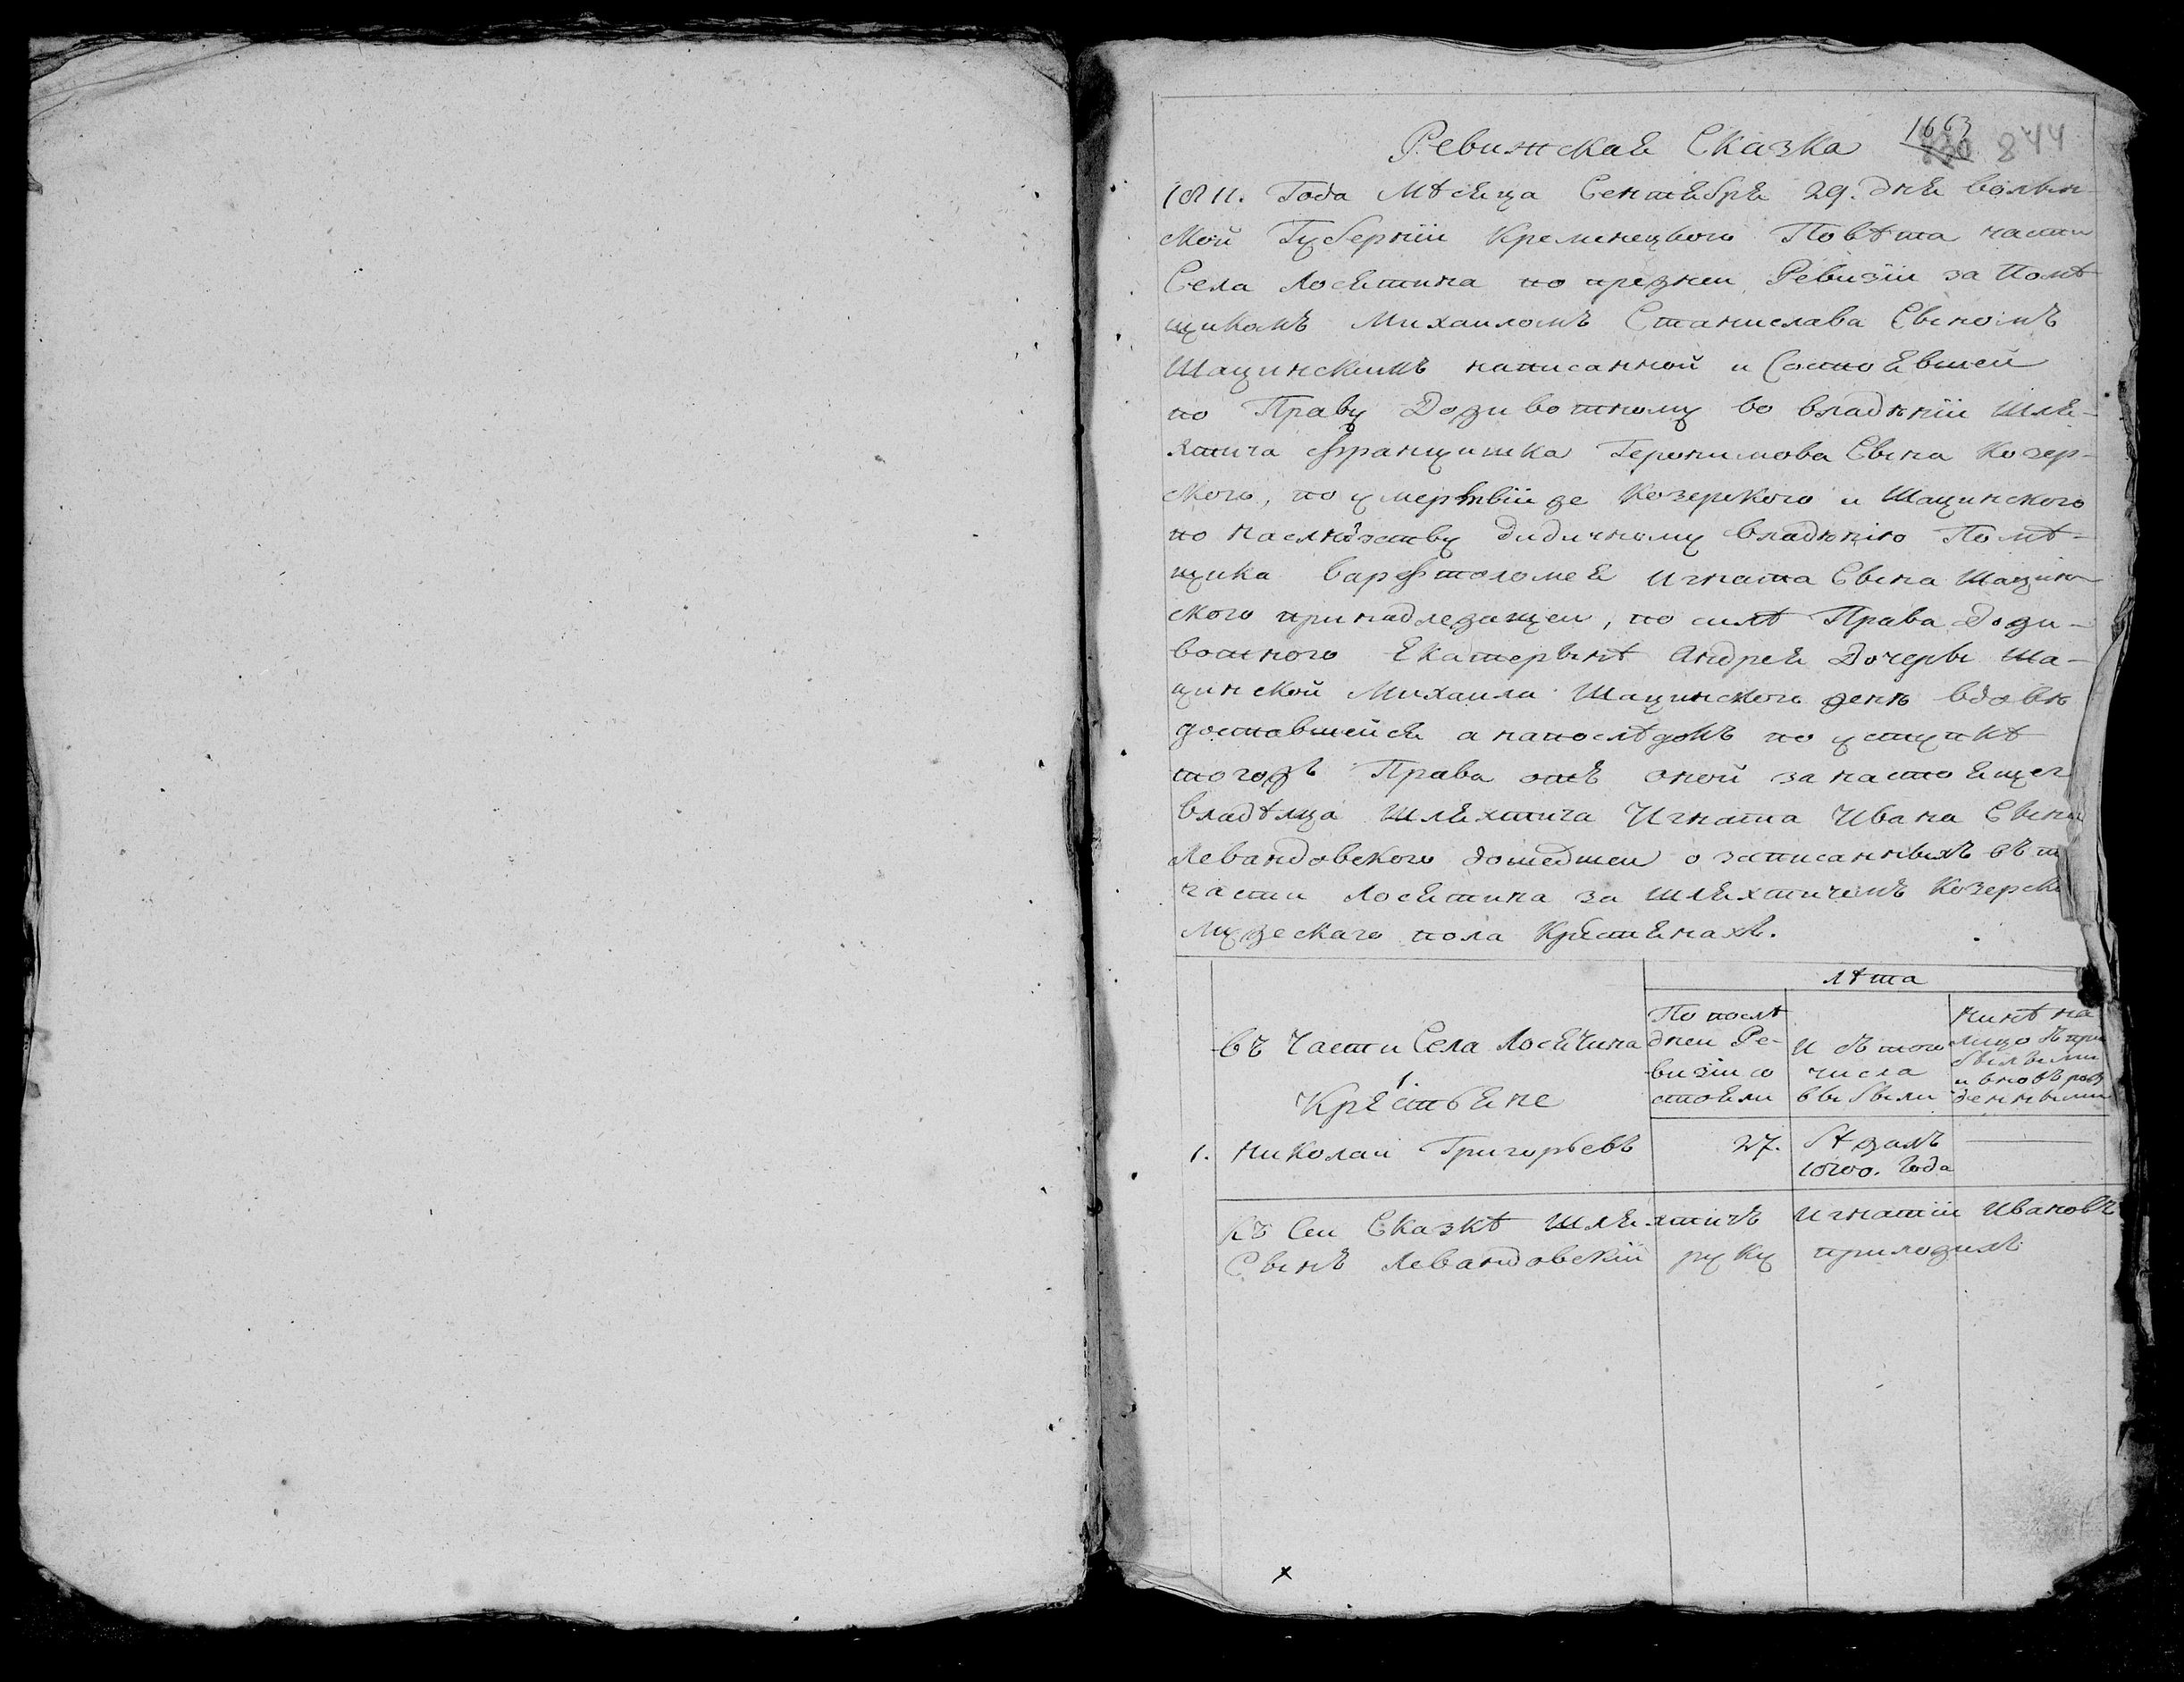 Ревижская Сказка 1663 844
1811. Года Мѣсяца Сентября 29. дня волын-
ской Губерніи Кременецкого Повѣта части
Села Лосятина по прежней Ревизіи за Помѣ
щикомъ Михаиломъ Станислава Сыномъ
Шащинскимъ написанной и Состоявшей
по Праву Доживотному во владѣніи Шля-
хтича Францишка Геронимова Сына Козер-
ского, по умертвіи же Козерского и Шащинского
по наслѣдству дидичному владѣнію Помѣ-
щика Варфтоломея Игната Сына Шащин-
ского принадлежащей, по силѣ Права Дожи-
вотного Екатерынѣ Андрея Дочеры Ша-
щинской Михаила Шащинского женѣ вдовѣ
доставшейся а напослѣдокъ по уступкѣ
тогожъ Права отъ оной за настоящег
владѣлца Шляхтича Игната Ивана Сына
Левандовского дошедшей о записанныхъ въ т
части Лосятина за Шляхтичемъ Козерски
мужескаго пола Крестянахъ.
Лѣта
въ Части Села Лосячина
Крестьяне
По послѣ
дней Ре-
визіи со
стояли
И съ того
числа
выбыли
Нинѣ на
лицо съ при
былыми
и вновь рож
денными
1. Николай Григорьевъ 27. бѣжалъ
1800. Года
Къ сей Сказкѣ Шляхтичъ Игнатій Ивановъ
Сынъ Левандовскій руку приложилъ
х